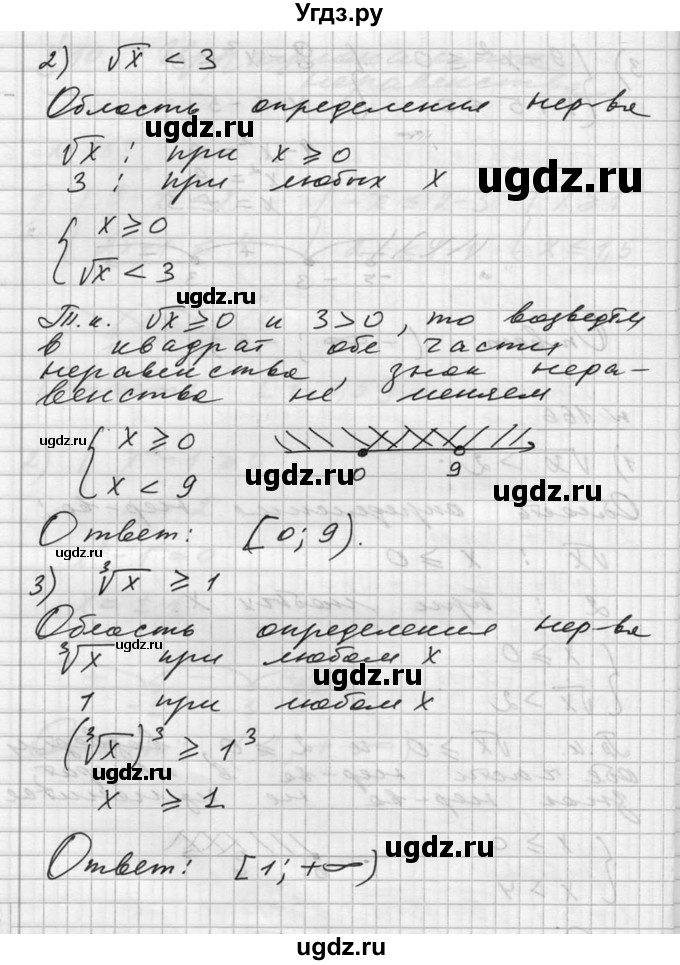 Угдз.ру
2) √x < 3
Область определения нер-вя
ugdz.ru
√x : при x ⩾ 0
ugdz.ru
3 : при любых x
{ x ⩾ 0
√x < 3
ugdz.ru
Т.к. √x ⩾ 0 и 3 > 0, то возведём
в квадрат обе части
неравенства, знак нера-
венства не меняем
ugdz.ru
{ x ⩾ 0
x < 9
0 9
ugdz.ru
ugdz.ru
Ответ: [0; 9).
ugdz.ru
3) ∛x ⩾ 1
Область определения нер-вя
ugdz.ru
∛x при любом x
ugdz.ru
1 при любом x
(∛x)³ ⩾ 1³
ugdz.ru
x ⩾ 1
ugdz.ru
Ответ: [1; +∞)
ugdz.ru
ugdz.ru